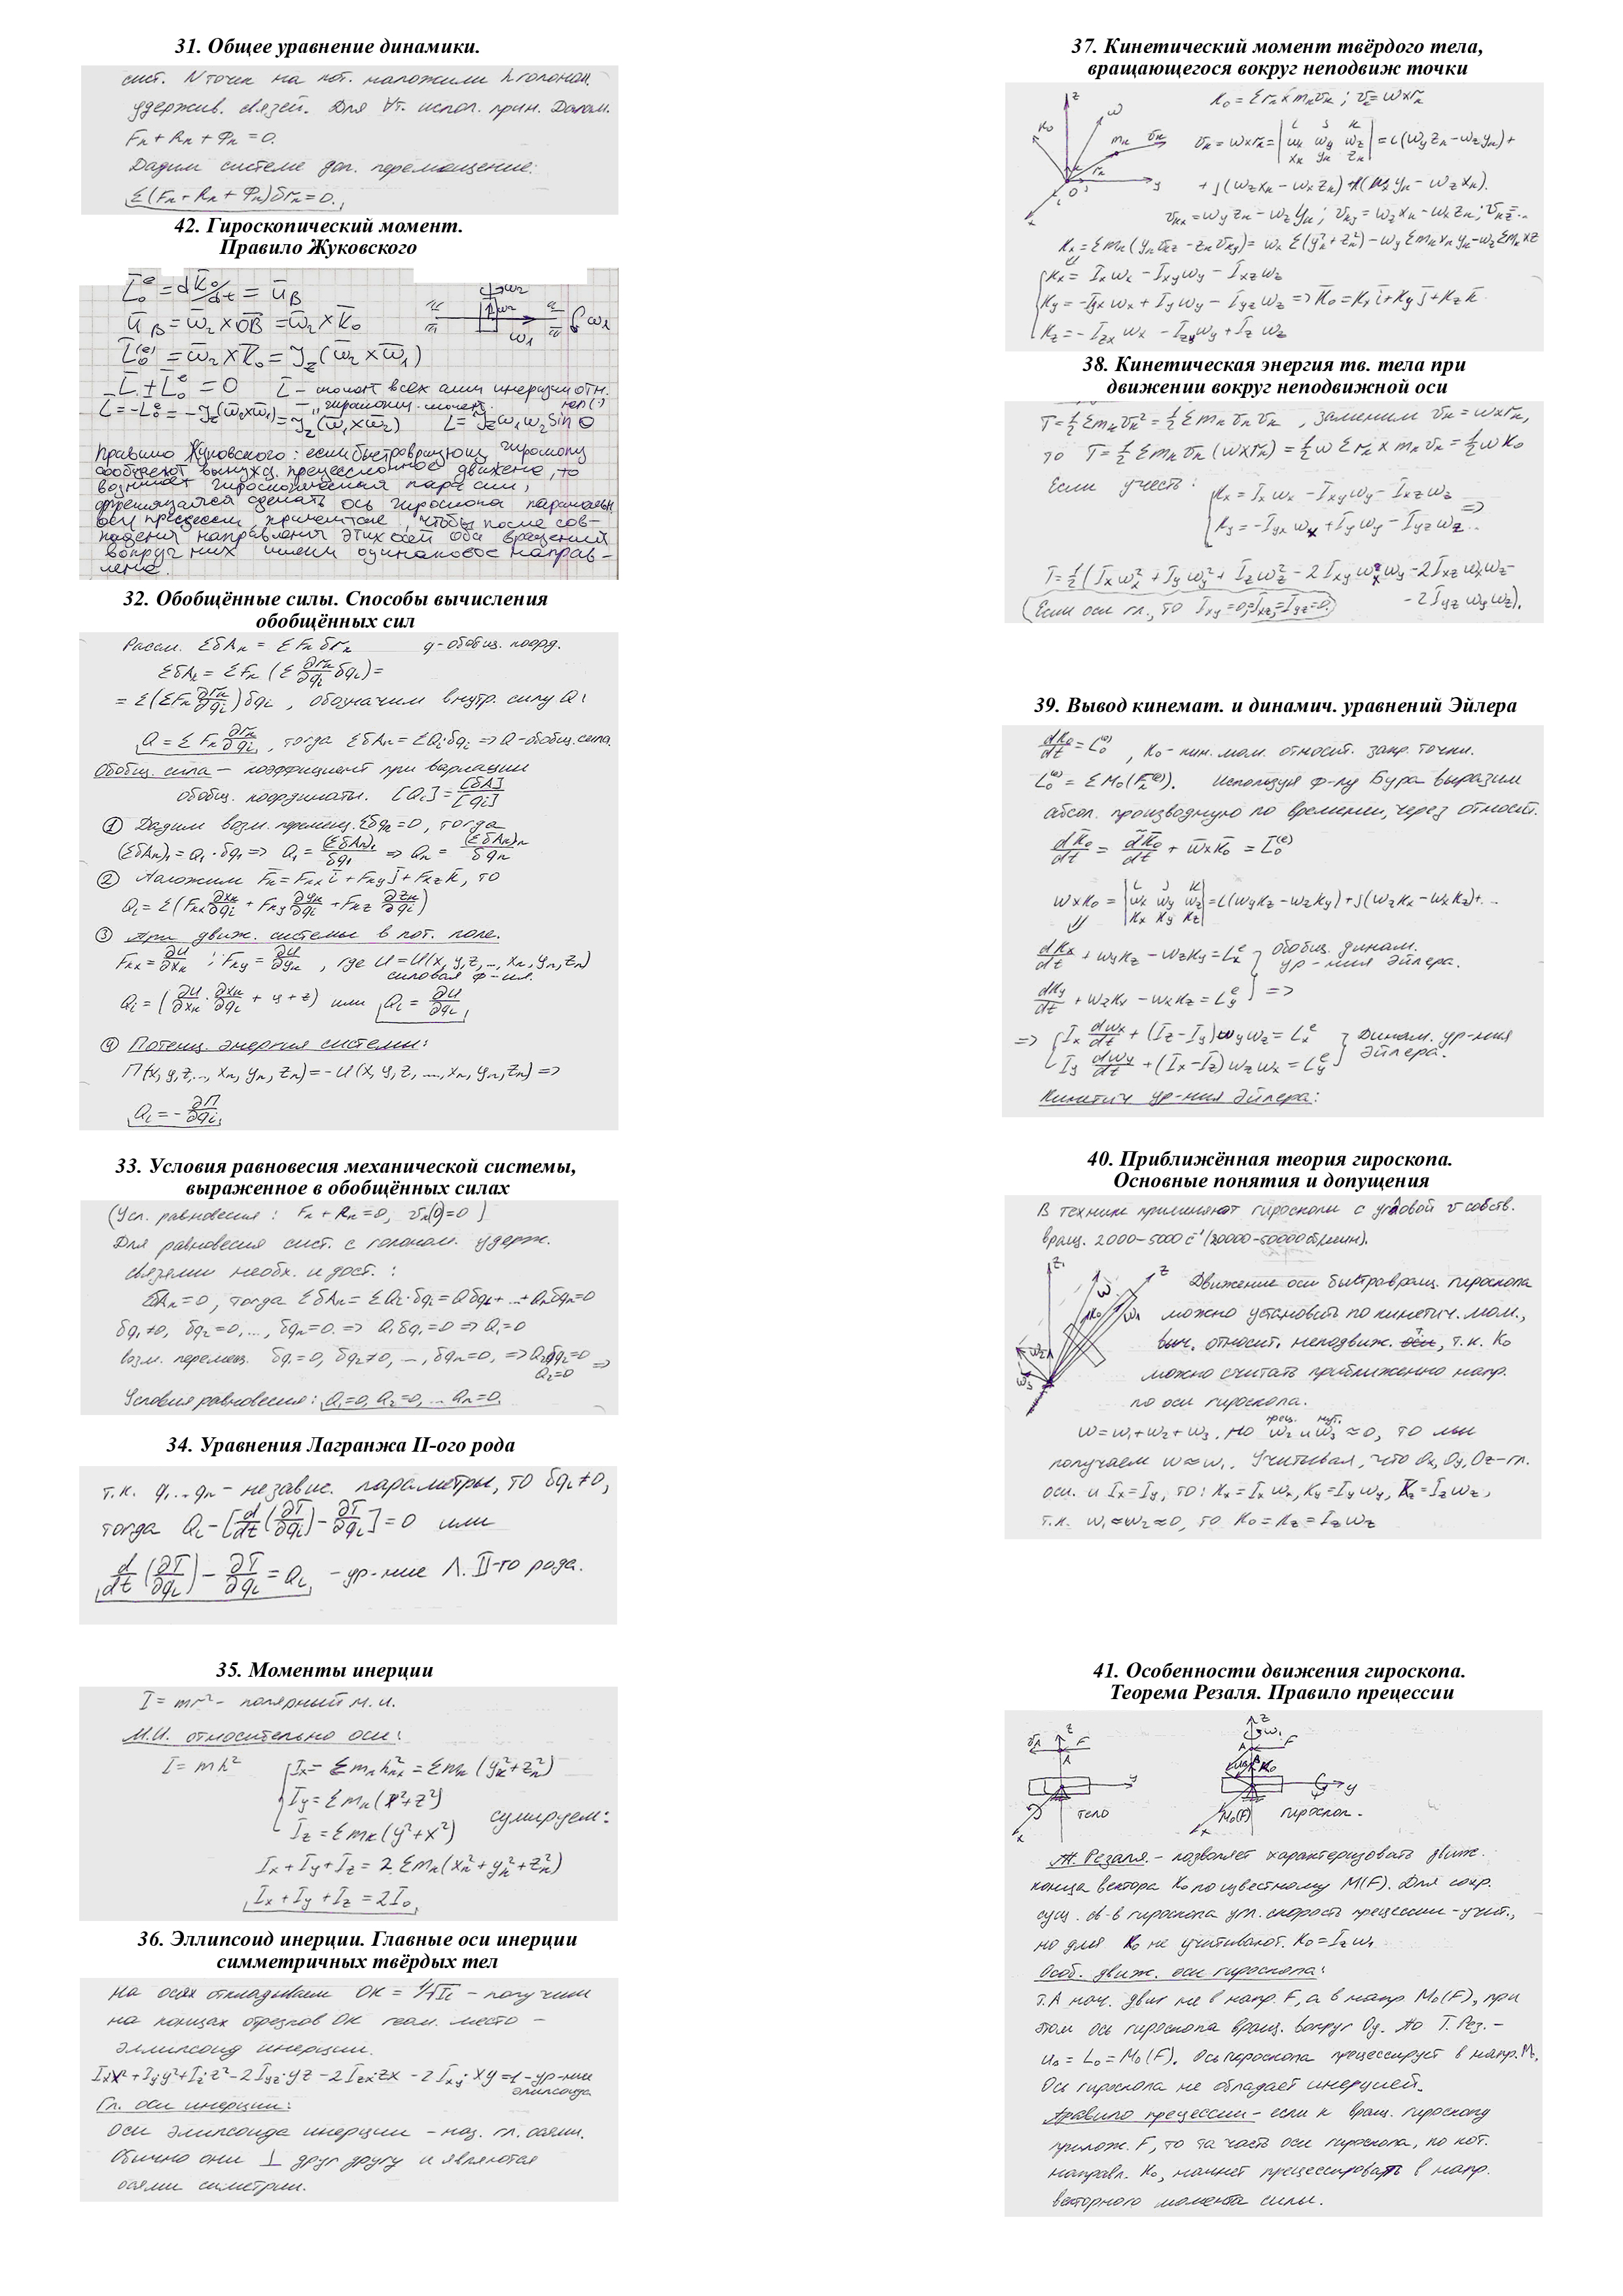 31. Общее уравнение динамики.
сист. N точек на кот. наложили h голоном.
удержив. связей. Для ∀т. испол. прин. Далам.
Fₙ + Rₙ + Φₙ = 0.
Дадим системе доп. перемещение:
Σ(Fₙ + Rₙ + Φₙ)δrₙ = 0.
42. Гироскопический момент.
Правило Жуковского
L₀ᵉ = dK₀/dt = u_B
u_B = ω₂ × OB = ω₂ × K₀
L₀⁽ᵉ⁾ = ω₂ × K₀ = J_z (ω₂ × ω₁)
L + L₀ᵉ = 0 L – момент всех сил инерции отн.
L = -L₀ᵉ = -J_z(ω₂×ω₁) = J_z(ω₁×ω₂) L = J_z ω₁ω₂ sin θ
Правило Жуковского: если быстровращающ. гироскопу
сообщают вынужд. прецессионное движение, то
возникает гироскопическая пара сил,
стремящаяся сделать ось гироскопа параллельн
оси прецессии, причем так, чтобы после сов-
падения направления этих осей оба вращения
вокруг них имели одинаковое направ-
ление.
32. Обобщённые силы. Способы вычисления
обобщённых сил
Рассм. ΣδAₙ = ΣFₙδrₙ q – обобщ. коорд.
ΣδAₖ = ΣFₙ (Σ ∂rₙ/∂qᵢ δqᵢ) =
= Σ(ΣFₙ ∂rₙ/∂qᵢ)δqᵢ , обозначим внутр. силу Qᵢ
Q = ΣFₙ ∂rₙ/∂qᵢ , тогда ΣδAₙ = ΣQᵢ·δqᵢ => Q – обобщ. сила.
Обобщ. сила – коэффициент при вариации
обобщ. координаты. [Qᵢ] = [δA]/[qᵢ]
① Дадим возм. перемещ. Σδqₙ = 0, тогда
(ΣδAₙ)₁ = Q₁·δq₁ => Q₁ = (ΣδAₙ)₁/δq₁ => Qₙ = (ΣδAₙ)ₙ/δqₙ
② Наложим Fₙ = Fₙₓ i + Fₙy j + Fₙz k, то
Qᵢ = Σ(Fₙₓ ∂xₙ/∂qᵢ + Fₙy ∂yₙ/∂qᵢ + Fₙz ∂zₙ/∂qᵢ)
③ При движ. системы в пот. поле.
Fₙₓ = ∂U/∂xₙ ; Fₙy = ∂U/∂yₙ , где U = U(x, y, z, ..., xₙ, yₙ, zₙ)
силовая ф-ия.
Qᵢ = (∂U/∂xₙ · ∂xₙ/∂qᵢ + y + z) или Qᵢ = ∂U/∂qᵢ
④ Потенц. энергия системы:
П(x, y, z, ..., xₙ, yₙ, zₙ) = -U(x, y, z, ..., xₙ, yₙ, zₙ) =>
Qᵢ = -∂П/∂qᵢ
33. Условия равновесия механической системы,
выраженное в обобщённых силах
(Усл. равновесия : Fₙ + Rₙ = 0, vₙ(0) = 0 )
Для равновесия сист. с голоном. удерж.
связями необх. и дост. :
δAₙ = 0, тогда ΣδAₙ = ΣQᵢ·δqᵢ = Qδq₁ + ... + Qₙδqₙ = 0
δq₁ ≠ 0, δq₂ = 0, ..., δqₙ = 0. => Q₁δq₁ = 0 => Q₁ = 0
возм. перемещ. δq₁ = 0, δq₂ ≠ 0, ..., δqₙ = 0, => Q₂δq₂ = 0 =>
Q₂ = 0
Условия равновесия: Q₁ = 0, Q₂ = 0, ... Qₙ = 0.
34. Уравнения Лагранжа II-ого рода
т.к. q₁...qₙ – независ. параметры, то δqᵢ ≠ 0,
тогда Qᵢ - [d/dt(∂T/∂qᵢ) - ∂T/∂qᵢ] = 0 или
d/dt(∂T/∂qᵢ) - ∂T/∂qᵢ = Qᵢ – ур-ние Л. II-го рода.
35. Моменты инерции
I = mr² – полярный м.и.
М.И. относительно оси:
I = mh² Iₓ = Σmₙh²ₙₓ = Σmₙ(yₙ² + zₙ²)
I_y = Σmₙ(x² + z²)
I_z = Σmₖ(y² + x²) сумируем:
Iₓ + I_y + I_z = 2Σmₙ(xₙ² + yₙ² + zₙ²)
Iₓ + I_y + I_z = 2I₀
36. Эллипсоид инерции. Главные оси инерции
симметричных твёрдых тел
На осях откладываем OK = 1/√Iᵢ – получим
на концах отрезков OK геом. место –
эллипсоид инерции.
Iₓx² + I_yy² + I_zz² - 2I_yz·yz - 2I_zx·zx - 2I_xy·xy = 1 – ур-ние
эллипсоида
Гл. оси инерции:
Оси эллипсоида инерции – наз. гл. осями.
Обычно они ⊥ друг другу и являются
осями симетрии.
37. Кинетический момент твёрдого тела,
вращающегося вокруг неподвиж точки
K₀ = Σrₙ × mₙvₙ ; vₖ = ω×rₙ
vₙ = ω×rₙ = |i j k; ωₓ ω_y ω_z; xₙ yₙ zₙ| = i(ω_y zₙ - ω_z yₙ) +
+ j(ω_z xₙ - ωₓ zₙ) + k(ωₓ yₙ - ω_z xₙ).
vₙₓ = ω_y zₙ - ω_z yₙ ; vₙy = ω_z xₙ - ωₓ zₙ ; vₙz = ...
Kₓ = Σmₙ(yₙvₙz - zₙvₙy) = ωₓ Σ(yₙ² + zₙ²) - ω_y Σmₙxₙyₙ - ω_z Σmₙxz
Kₓ = Iₓωₓ - I_xyω_y - I_xzω_z
K_y = -I_yxωₓ + I_yω_y - I_yzω_z => K₀ = Kₓi + K_yj + K_zk
K_z = -I_zxωₓ - I_zyω_y + I_zω_z
38. Кинетическая энергия тв. тела при
движении вокруг неподвижной оси
T = ½Σmₙvₙ² = ½Σmₙvₙvₙ , заменим vₙ = ω×rₙ,
то T = ½Σmₙvₙ(ω×rₙ) = ½ωΣrₙ×mₙvₙ = ½ωK₀
Если учесть: Kₓ = Iₓωₓ - I_xyω_y - I_xzω_z
K_y = -I_yxωₓ + I_yω_y - I_yzω_z ... =>
T = ½(Iₓωₓ² + I_yω_y² + I_zω_z² - 2I_xyωₓω_y - 2I_xzωₓω_z -
(Если оси гл., то I_xy = 0, I_xz = I_yz = 0.) - 2I_yzω_yω_z).
39. Вывод кинемат. и динамич. уравнений Эйлера
dK₀/dt = L₀⁽ᵉ⁾ , K₀ – кин. мом. относит. закр. точки.
L₀⁽ᵉ⁾ = ΣM₀(Fₙ⁽ᵉ⁾). Используя ф-лу Бура выразим
абсол. производную по времени, через относит.
dK₀/dt = d̃K₀/dt + ω×K₀ = L₀⁽ᵉ⁾
ω×K₀ = |i j k; ωₓ ω_y ω_z; Kₓ K_y K_z| = i(ω_yK_z - ω_zK_y) + j(ω_zKₓ - ωₓK_z) + ...
dKₓ/dt + ω_yK_z - ω_zK_y = Lₓᵉ обобщ. динам.
ур-ния Эйлера.
dK_y/dt + ω_zKₓ - ωₓK_z = L_yᵉ =>
=> Iₓ dωₓ/dt + (I_z - I_y)ω_yω_z = Lₓᵉ Динам. ур-ния
I_y dω_y/dt + (Iₓ - I_z)ω_zωₓ = L_yᵉ Эйлера.
Кинетич ур-ния Эйлера:
40. Приближённая теория гироскопа.
Основные понятия и допущения
В технике применяют гироскопы с угловой v собств.
вращ. 2000–5000 с⁻¹ (20000–50000 об/мин).
Движение оси быстровращ. гироскопа
можно установить по кинетич. мом.,
выч. относит. неподвиж. т, т.к. K₀
можно считать приближенно напр.
по оси гироскопа.
ω = ω₁ + ω₂ + ω₃. Но ω₂ и ω₃ ≈ 0, то мы
прец. нут.
получаем ω ≈ ω₁. Учитывая, что Ox, Oy, Oz – гл.
оси. и Iₓ = I_y, то: Kₓ = Iₓωₓ, K_y = I_yω_y, K_z = I_zω_z,
т.к. ω₁ ≈ ω₂ ≈ 0, то K₀ = K_z = I_zω_z
41. Особенности движения гироскопа.
Теорема Резаля. Правило прецессии
тело гироскоп.
Т. Резаля. – позволяет характеризовать движ.
конца вектора K₀ по известному M(F). Для сохр.
сущ. св-в гироскопа угл. скорость прецессии – учит.,
но для K₀ не учитывают. K₀ = I_zω₁
Особ. движ. оси гироскопа:
т.A нач. движ не в напр. F, а в напр M₀(F), при
этом ось гироскопа вращ. вокруг Oy. По Т. Рез. –
u₀ = L₀ = M₀(F). Ось гироскопа прецессирует в напр. M.
Ось гироскопа не обладает инерцией.
Правило прецессии – если к вращ. гироскопу
прилож. F, то та часть оси гироскопа, по кот.
направл. K₀, начнет прецессировать в напр.
векторного момента силы.